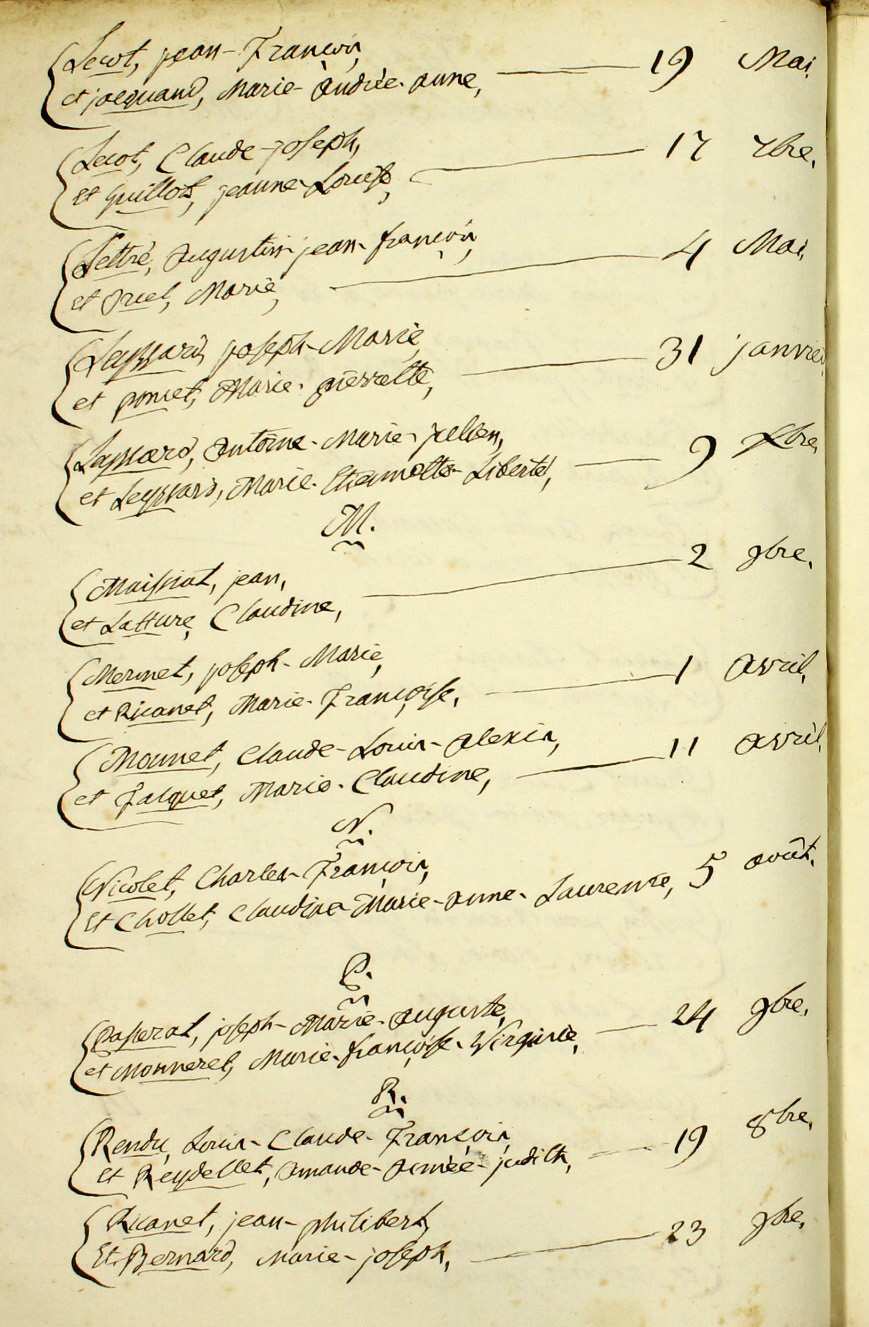 Lecot, jean-François,
et jacquand, Marie-Andrée-anne, 19 Mai
Lecot, Claude-joseph,
Et Guillot, jeanne-Louise, 17 7bre.
Lettré, Augustin-jean-françois,
et Druet, Marie, 4 Mai
Leyssard, joseph-Marie,
et poncet, Marie-pierrette, 31 janvier
Leyssard, Antoine-Marie-julien,
et Leyssard, Marie-Etiennette-Liberté, 9 Xbre
M.
Maissiat, jean,
et Lature, Claudine, 2 9bre.
Mermet, joseph-Marie,
et Ricanet, Marie-Françoise, 1 avril,
Monnet, Claude-Louis-Alexis,
et Falquet, Marie-Claudine, 11 avril
N.
Nicolet, Charles-François,
Et Chollet, Claudine-Marie-anne-Laurence, 5 août.
P.
passerat, joseph-Marie-Auguste,
et Monneret, Marie-françoise-Virginie, 24 9bre.
R.
Rendu, Louis-Claude-François,
Et Reydellet, Amande-Aimée-judith, 19 8bre.
Ricanet, jean-philibert,
Et Bernard, Marie-joseph, 23 9bre.